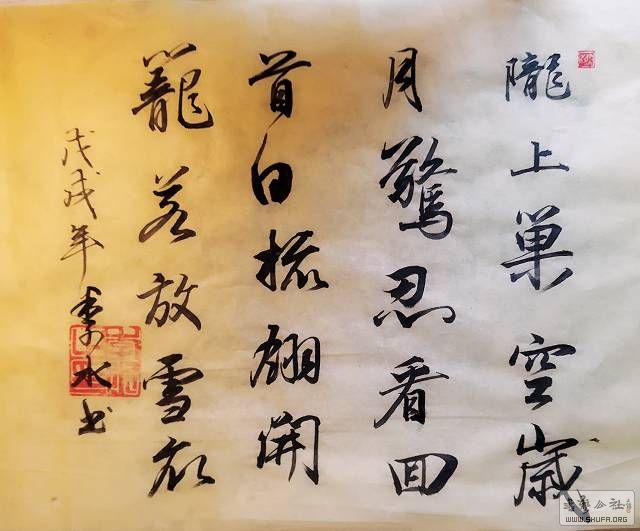 隴上巢空歲
月驚忍看回
首自梳翎開
籠若放雪衣
戊戌年李水书
书法公社
WWW.SHUFA.ORG